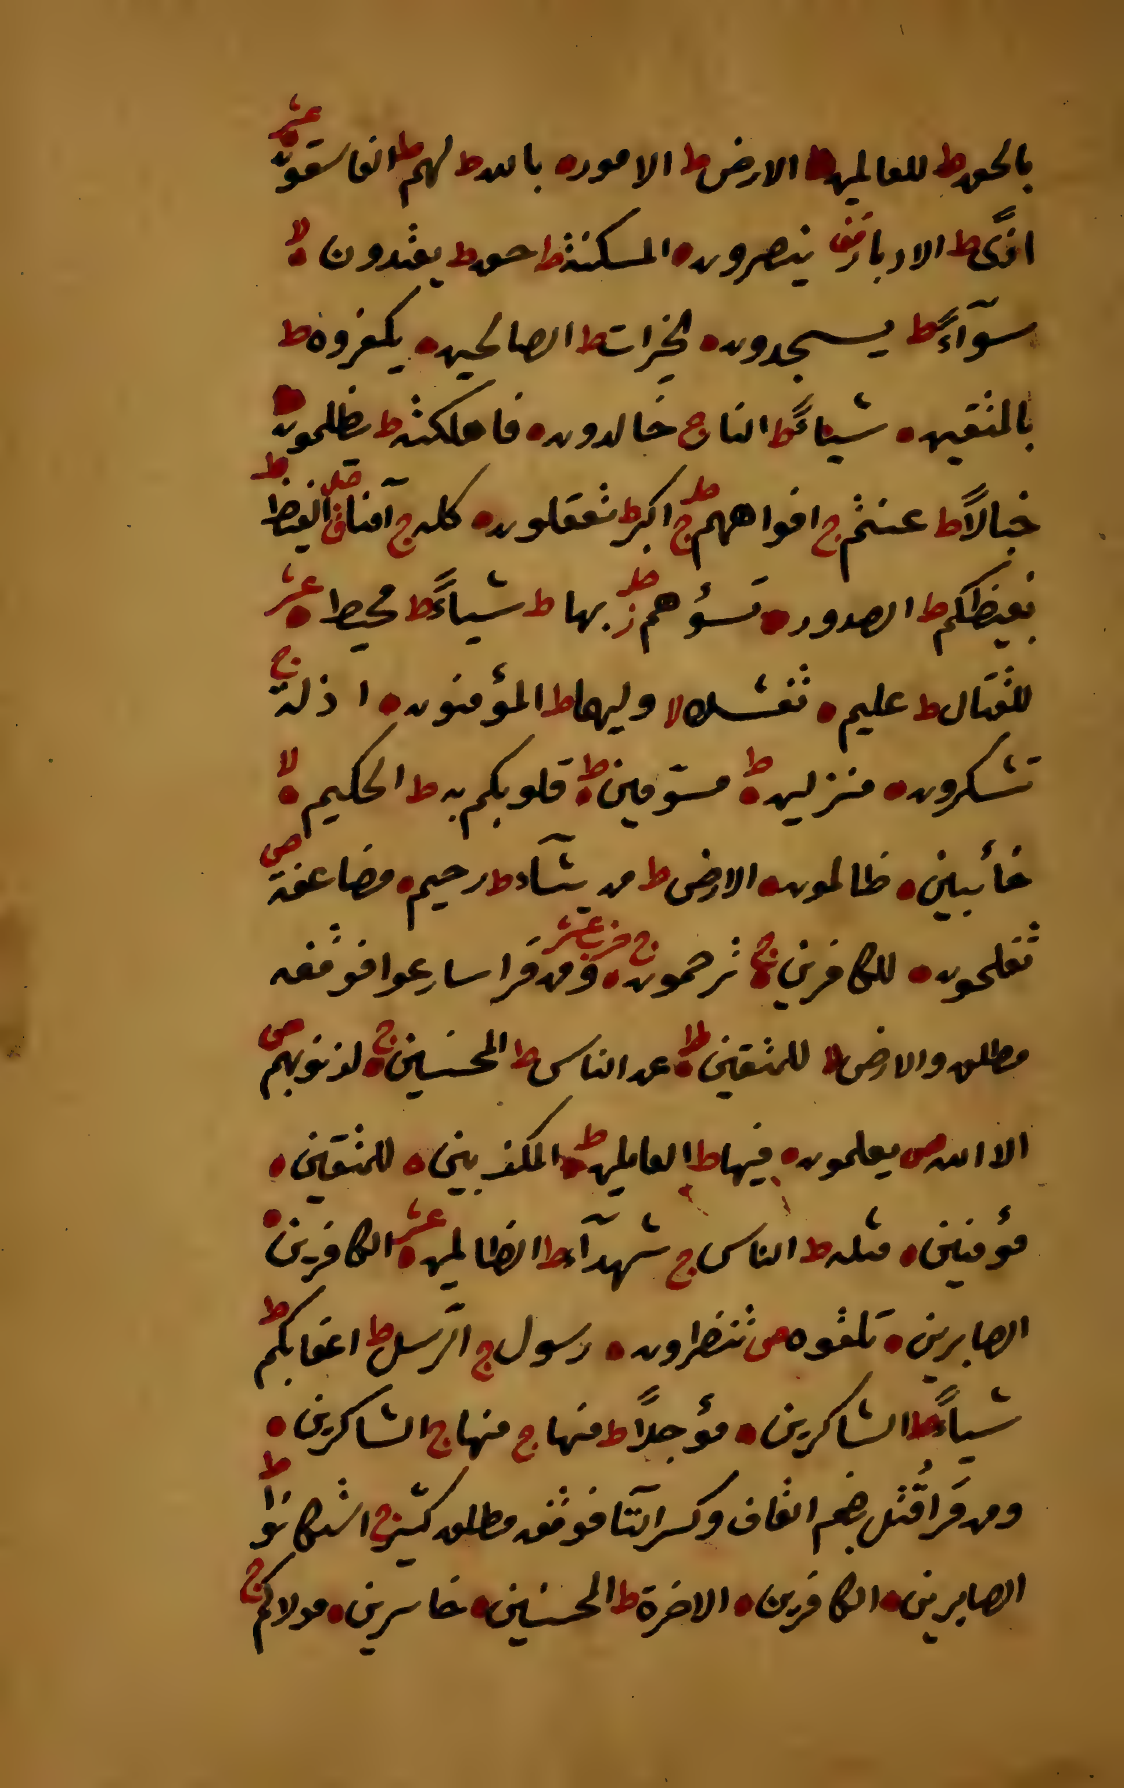 بالحق ط للعالمين الارض ط الامور ه بالله ط لهم ط الفاسقون عشر
اذًى ط الادبار قف ينصرون ه المسكنة ط حق ط يعتدون ه لا
سوآءً ط يسجدون ه الخيرات ط الصالحين ه يكفروه ط
بالمتقين ه شياءً ط النار ج خالدون ه فاهلكته ط يظلمون
خبالاً ط عنتم ج افواههم ج صلى اكبر ط تعقلون ه كله ج آمنا ق صلى الغيظ ط
بغيظكم ط الصدور ه تسؤهم ز صلى بها ط شياءً ط محيط ه عشر
للقتال ط عليم ه تفشلا لا وليهما ط المؤمنون ه اذلة ج
تشكرون ه منزلين ه ط مسوّمين ه ط قلوبكم به ط الحكيم ه لا
خائبين ه ظالمون ه الارض ط من يشآء ط رحيم ه مضاعفة ص
تفلحون ه للكافرين ه ج ترحمون ه ج عشر ومن قرا سارعوا فوقفه
مطلق والارض لا للمتقين ه لا عن الناس ط المحسنين ه ج لذنوبهم ص
الا الله ص يعلمون ه فيها ط العاملين ه ط المكذبين ه للمتقين ه
مؤمنين ه مثله ط الناس ج شهدآء ط الظالمين ه عشر الكافرين ه
الصابرين ه تلقوه ص تنظرون ه رسول ج الرّسل ط اعقابكم ط
شياءً ط الشاكرين ه مؤجلاً ط منها ج منها ج الشاكرين ه
ومن قرا قُتل بضم القاف وكسر التآ فوقفه مطلق كثير ج استكانوا ط
الصابرين ه الكافرين ه الاخرة ط المحسنين ه خاسرين ه مولاكم ج